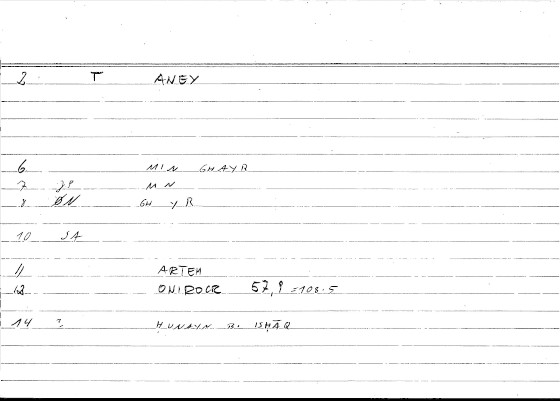 2 T ANEY
6 MIN GHAYR
7 JP M N
8 ØN GH Y R
10 SA
11 ARTEM
12 ONIROCR 57,9 =108.5
14 ḤUNAYN B. ISḤĀQ